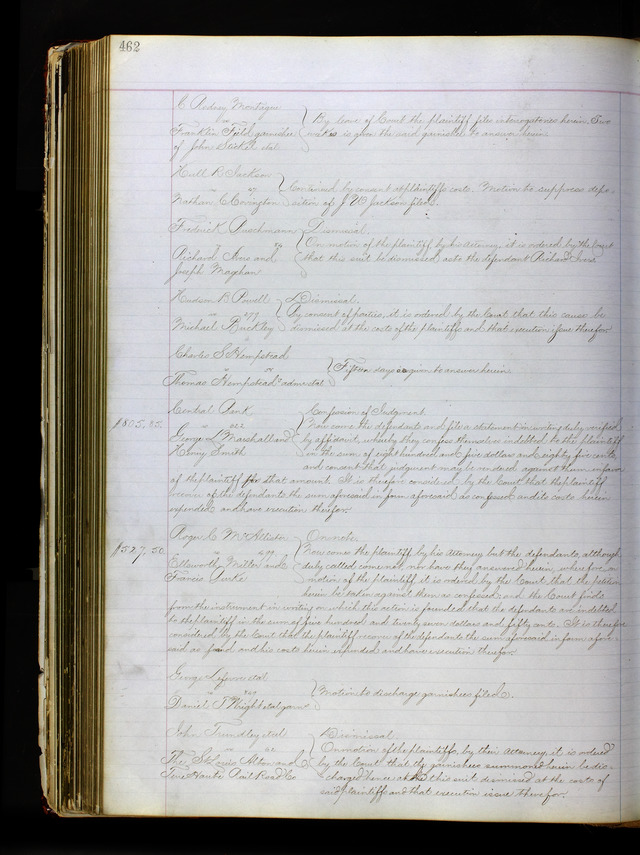 462
C Rodney Montague
Franklin Field garnishee
of John Stickel etal
By leave of Court the plaintiff files interrogatories herein. Two
weeks is given the said garnishee to answer herein
Hull R Jackson
Nathan C Covington
Continued by consent at plaintiffs costs. Motion to suppress depo-
sition of J W Jackson filed.
Frederick Puschmann
Richard Ivers and
Joseph Maxphan
Dismissal
On motion of the plaintiff by his Attorney, it is ordered by the Court
that this suit be dismissed as to the defendant Richard Ivers
Hudson B Powell
Michael Buckley
Dismissal
By consent of parties, it is ordered by the Court that this cause be
dismissed at the costs of the plaintiffs and that execution issue therefor
Charles S Hempstead
Thomas Hempsteads admr etal
Fifteen days is given to answer herein
$805.85.
Central Bank
George L Marshall and
Henry Smith
Confession of Judgment
Now come the defendants and file a statement in writing duly verified
by affidavit, whereby they confess themselves indebted to the plaintiff
in the sum of eight hundred and five dollars and eighty five cents
and consent that judgment may be rendered against them in favor
of the plaintiff for that amount. It is therefore considered by the Court that the plaintiff
recover of the defendants the sum aforesaid in form aforesaid as confessed and its costs herein
expended and have execution therefor.
$527.50
Roger C McAllister
Ellsworth Miller and
Francis
On note
Now comes the plaintiff by his Attorney but the defendants, although
duly called come not, nor have they answered herein, wherefore on
motion of the plaintiff it is ordered by the Court that the petition
herein be taken against them as confessed, and the Court finds
from the instrument in writing on which this action is founded that the defendants are indebted
to the plaintiff in the sum of five hundred and twenty seven dollars and fifty cents. It is therefore
considered by the Court that the plaintiff recover of the defendants the sum aforesaid in form afore-
said as found and his costs herein expended and have execution therefor.
George Lefevre etal
Daniel T Wright etal garns
Motion to discharge garnishees filed.
John Trundley etal
The St Louis Alton and
Terre Haute Rail Road Co
Dismissal
On motion of the plaintiffs, by their Attorney, it is ordered
by the Court that the garnishees summoned herein be dis-
charged hence and this suit dismissed at the costs of
said plaintiffs and that execution issue therefor.